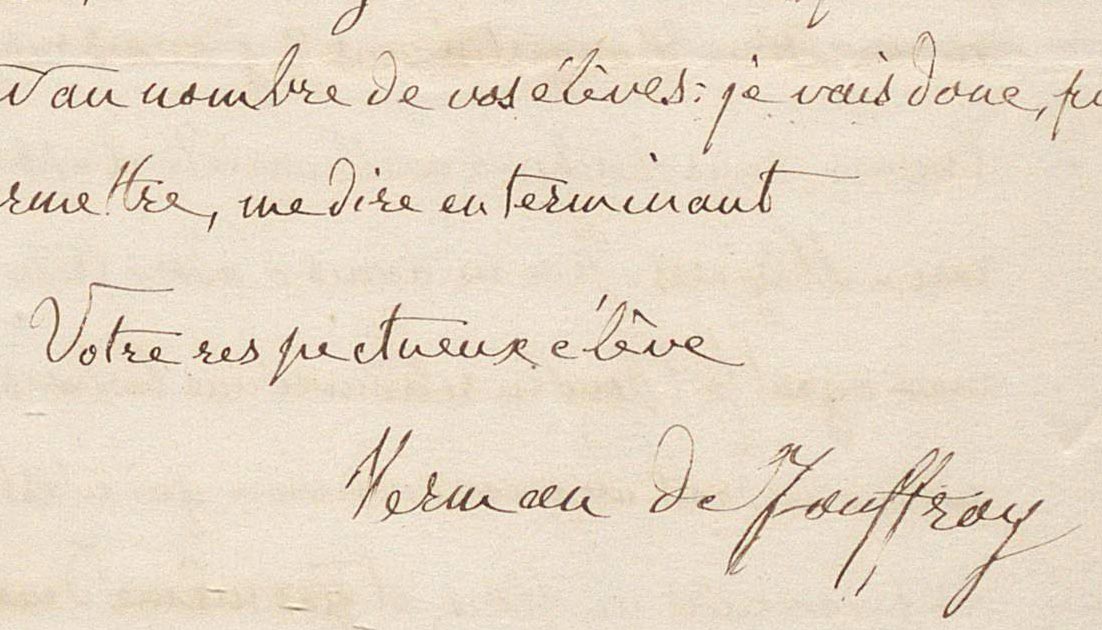 au nombre de vos élèves : je vais donc,
rmettre, me dire en terminant
Votre respectueux élève
Herman de Jouffroy